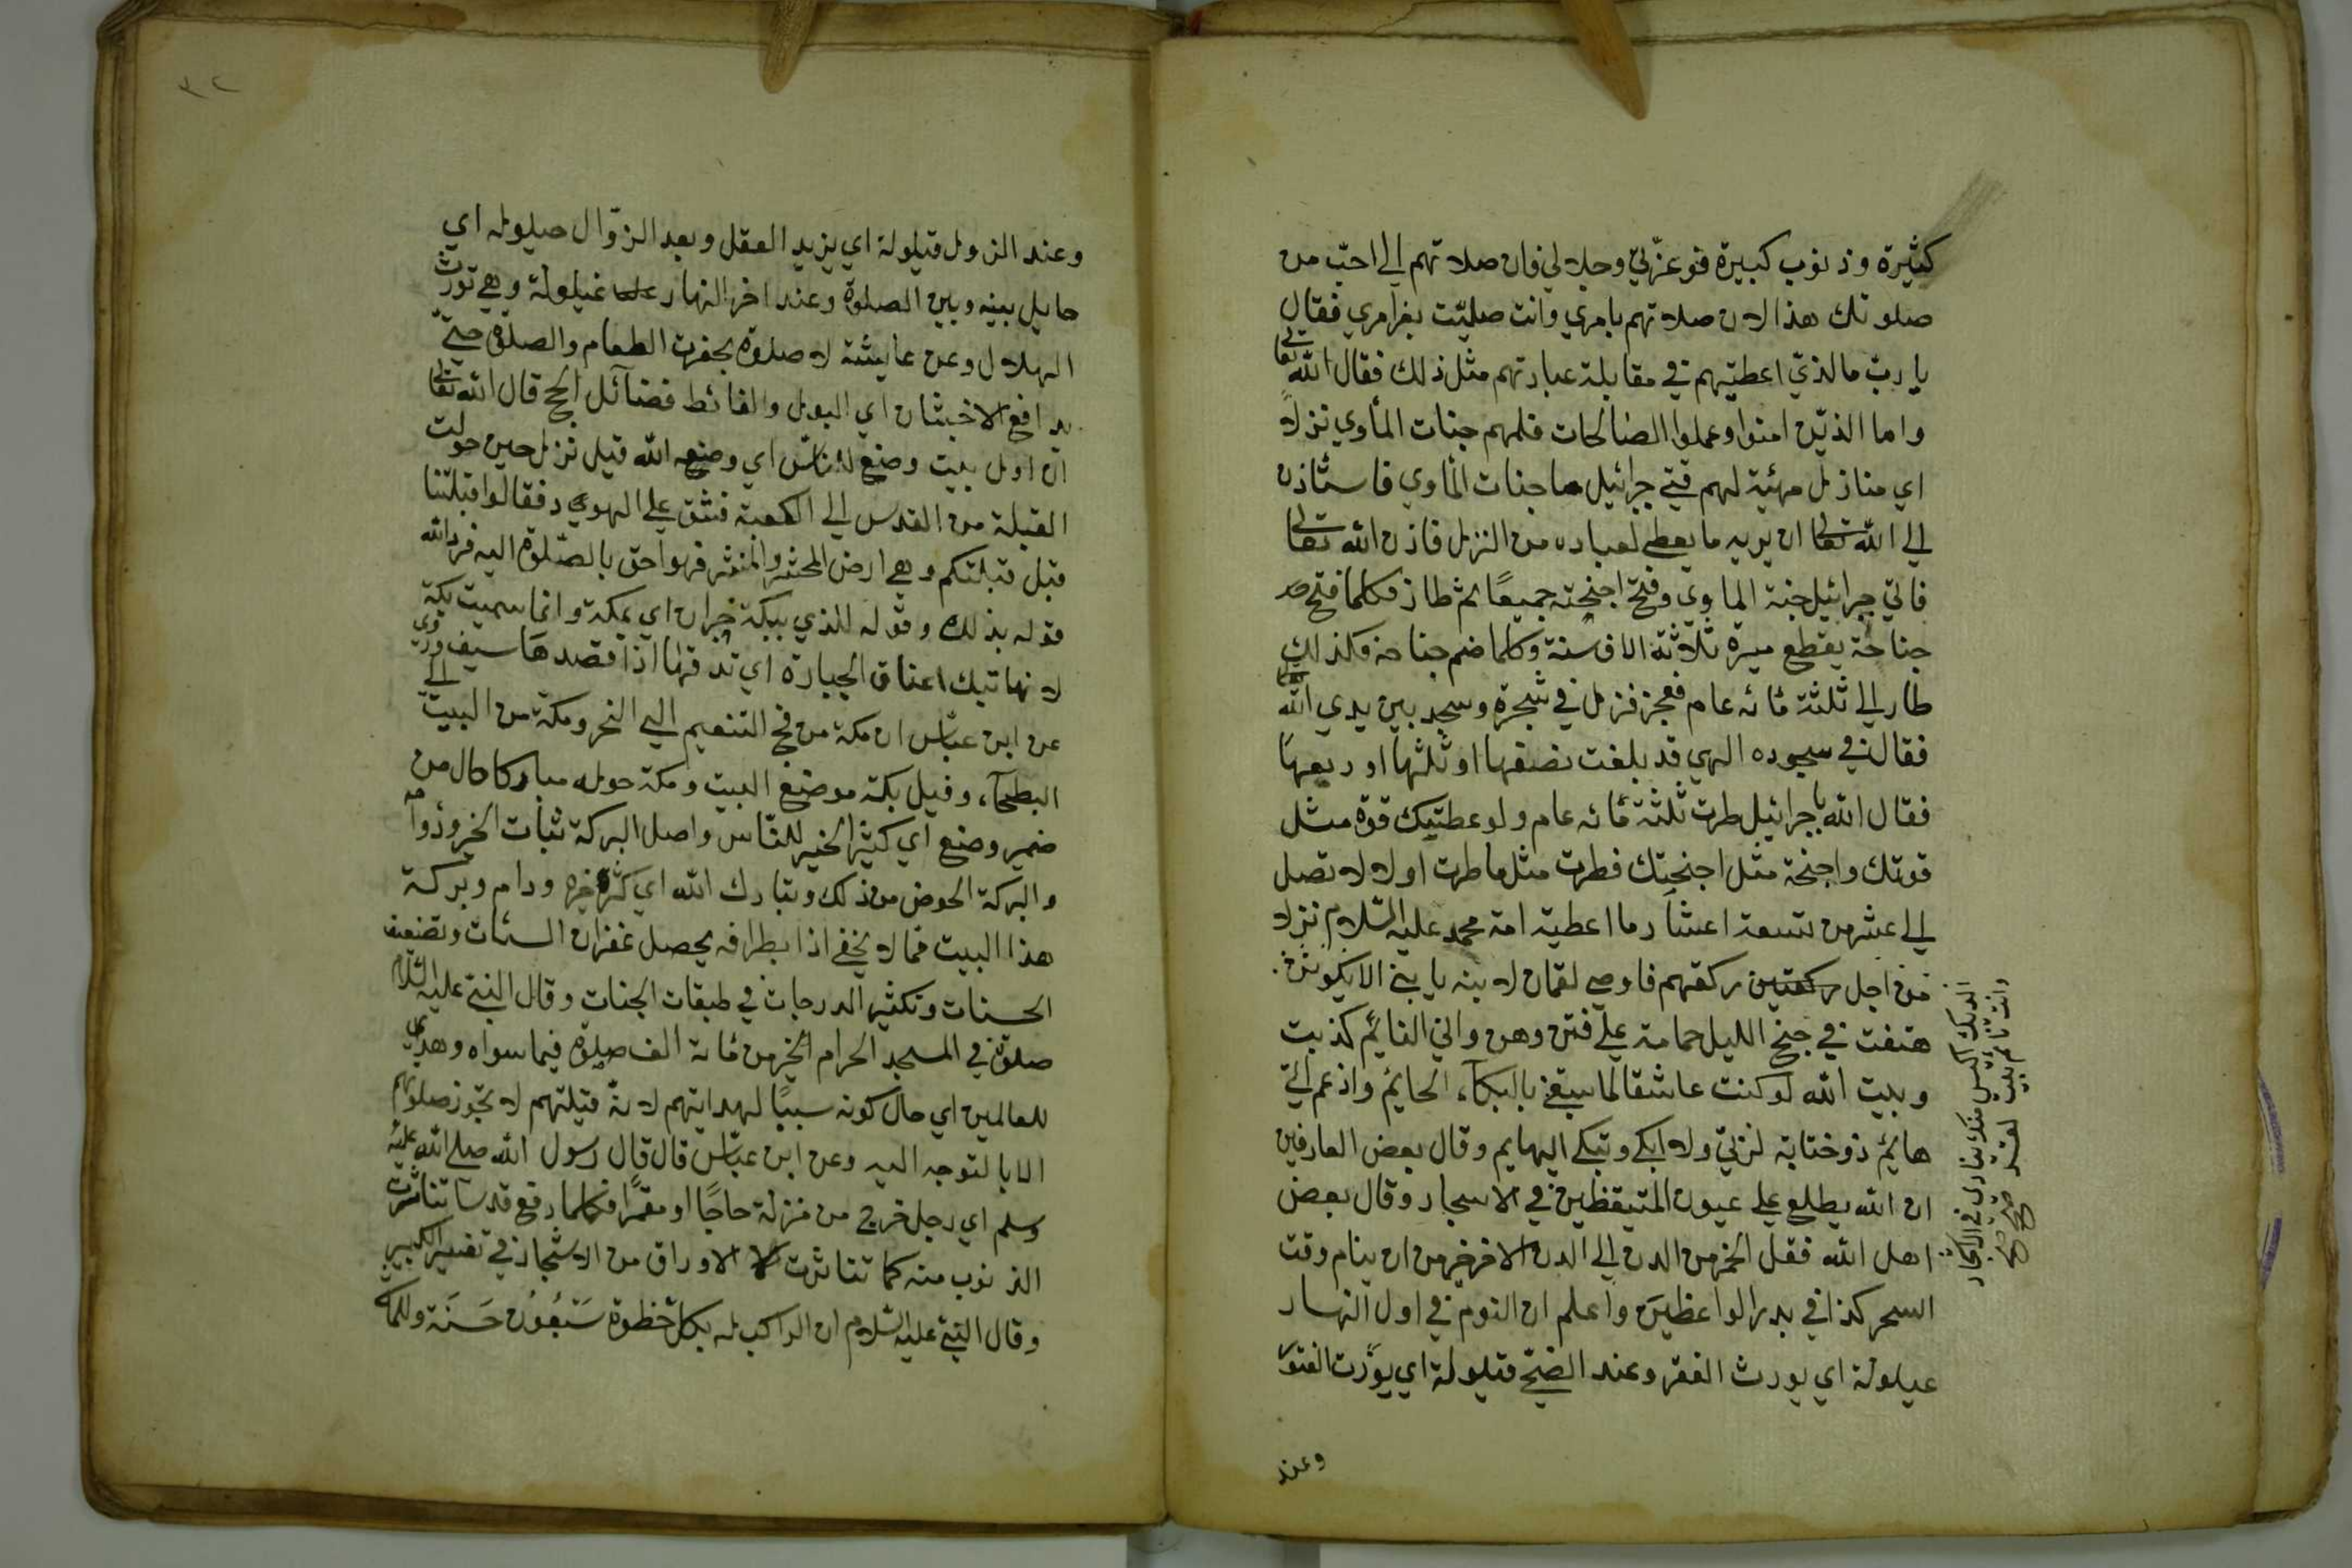 كثيرة وذنوب كبيرة فوعزتي وجلالي فان صلاتهم الي احب من
صلوتك هذا لان صلاتهم بامري وانت صليت بغير امري فقال
يا رب مالذي اعطيتهم في مقابلة عبادتهم مثل ذلك فقال الله تعالى
واما الذين امنوا وعملوا الصالحات فلهم جنات المأوي نزلا
اي منازل مهيئة لهم جبرائيل جنات المأوي فاستأذن
الي الله تعالى ان يريه ما يعطي لعباده من النزل فاذن الله تعالى
فاتي جبرائيل جنة الماوي وفتح اجنحته جميعا ثم طار فكلما فتح
جناحة يقطع ميرة ثلاثة الاف سنة وكلما ضم جناحه فكذلك
طار الي ثلثة مائه عام فعجز فنزل في شجرة وسجد بين يدي الله تعالى
فقال في سجوده الهي قد بلغت نصفها او ثلثها او ربعها
فقال الله يا جبرائيل طرت ثلثة مائه عام ولو عطيتك قوة مثل
قوتك واجنحة مثل اجنحتك فطرت مثل ما طرت اولا لا تصل
الي عشر من تسعة اعشار ما اعطية امة محمد عليه السلام نزلا
من اجل ركعتين ركعتهم فاوصي لقمان لابنه يا بني الا يكونن
هتفت في جنح الليل حمامة علي فنن وهن واني النائم كذبت
وبيت الله لو كنت عاشقا لما سبقني بالبكاء الحايم وازعم اني
هائم ذو ختابة لنزتي ولا ابكي وتبكي البهايم وقال بعض العارفين
ان الله يطلع علي عيون المتيقظين في الاسحار وقال بعض
اهل الله فقل الخمر من الدن الي الدن الاخر خير من ان ينام وقت
السحر كذا في بدر الواعظين واعلم ان النوم في اول النهار
عيلولة اي يورث الفقر وعند الضحي فتيلولة اي يورث الفتور
وعند
الديك اكيس منك ينادي في الاسحار
وانت نائم
٣٢
وعند الزول قيلولة اي يزيد العقل وبعد الزوال حيلوله اي
حايل بينه وبين الصلوة وعند اخر النهار غيلولة وهي تورث
الهلال وعن عايشة لا صلوة بحضرت الطعام والصلوة حتي
يدافع الاخبثان اي البول والغائط فضآئل الحج قال الله تعالى
ان اول بيت وضع للناس اي وضعه الله قيل نزل حين حولت
القبلة من القدس الي الكعبة فشق علي اليهود فقالوا قبلتنا
قبل قبلتكم وهي ارض المحشر والمنشر فهو احق بالصلوة اليه فرد الله
قوله بذلك وقوله للذي ببكة خبران اي بمكة وانما سميت بكة
لانها تبك اعناق الجبارة اي تدقها اذا قصدها روي
عن ابن عباس ان مكة من فج التنعيم الي النحر ومكة من البيت الي
البطحآء وقيل بكة موضع البيت ومكة حوله مباركا حال من
ضمير وضع اي كثير الخير للناس واصل البركة ثبات الخير وذوامه
والبركة الحوض من ذلك وتبارك الله اي كثر خيره ودام وبركة
هذا البيت فما لا يخفي اذا بطرافه يحصل غفران السئات وتضعيف
الحسنات وتكثير الدرجات في طبقات الجنات وقال النبي عليه السلام
صلوة في المسجد الحرام الخير من مائة الف صلوة فيما سواه وهدي
للعالمين اي حال كونه سببا لهدايتهم لانه قبلتهم لا تجوز صلوتهم
الا بالتوجه اليه وعن ابن عباس قال قال رسول الله صلى الله عليه
وسلم اي رجل خرج من منزلة حاجا او معتمرا فكلما رفع قدما تناثرت
الذنوب منه كما تناثرت الاوراق من الاشجار في تفسير الكبير
وقال النبي عليه السلام ان الراكب له بكل خطوة سبعون حسنة وللماشي